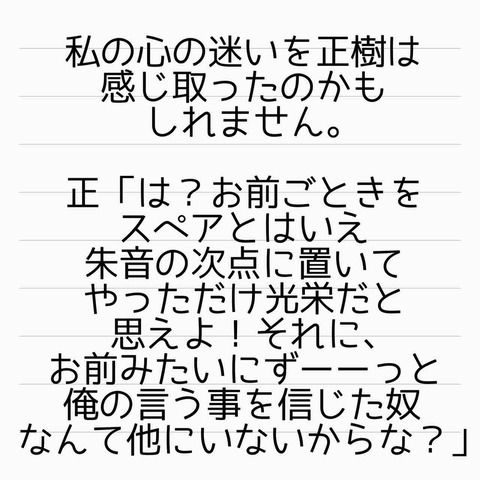 私の心の迷いを正樹は
感じ取ったのかも
しれません。
正「は？お前ごときを
スペアとはいえ
朱音の次点に置いて
やっただけ光栄だと
思えよ！それに、
お前みたいにずーーっと
俺の言う事を信じた奴
なんて他にいないからな？」